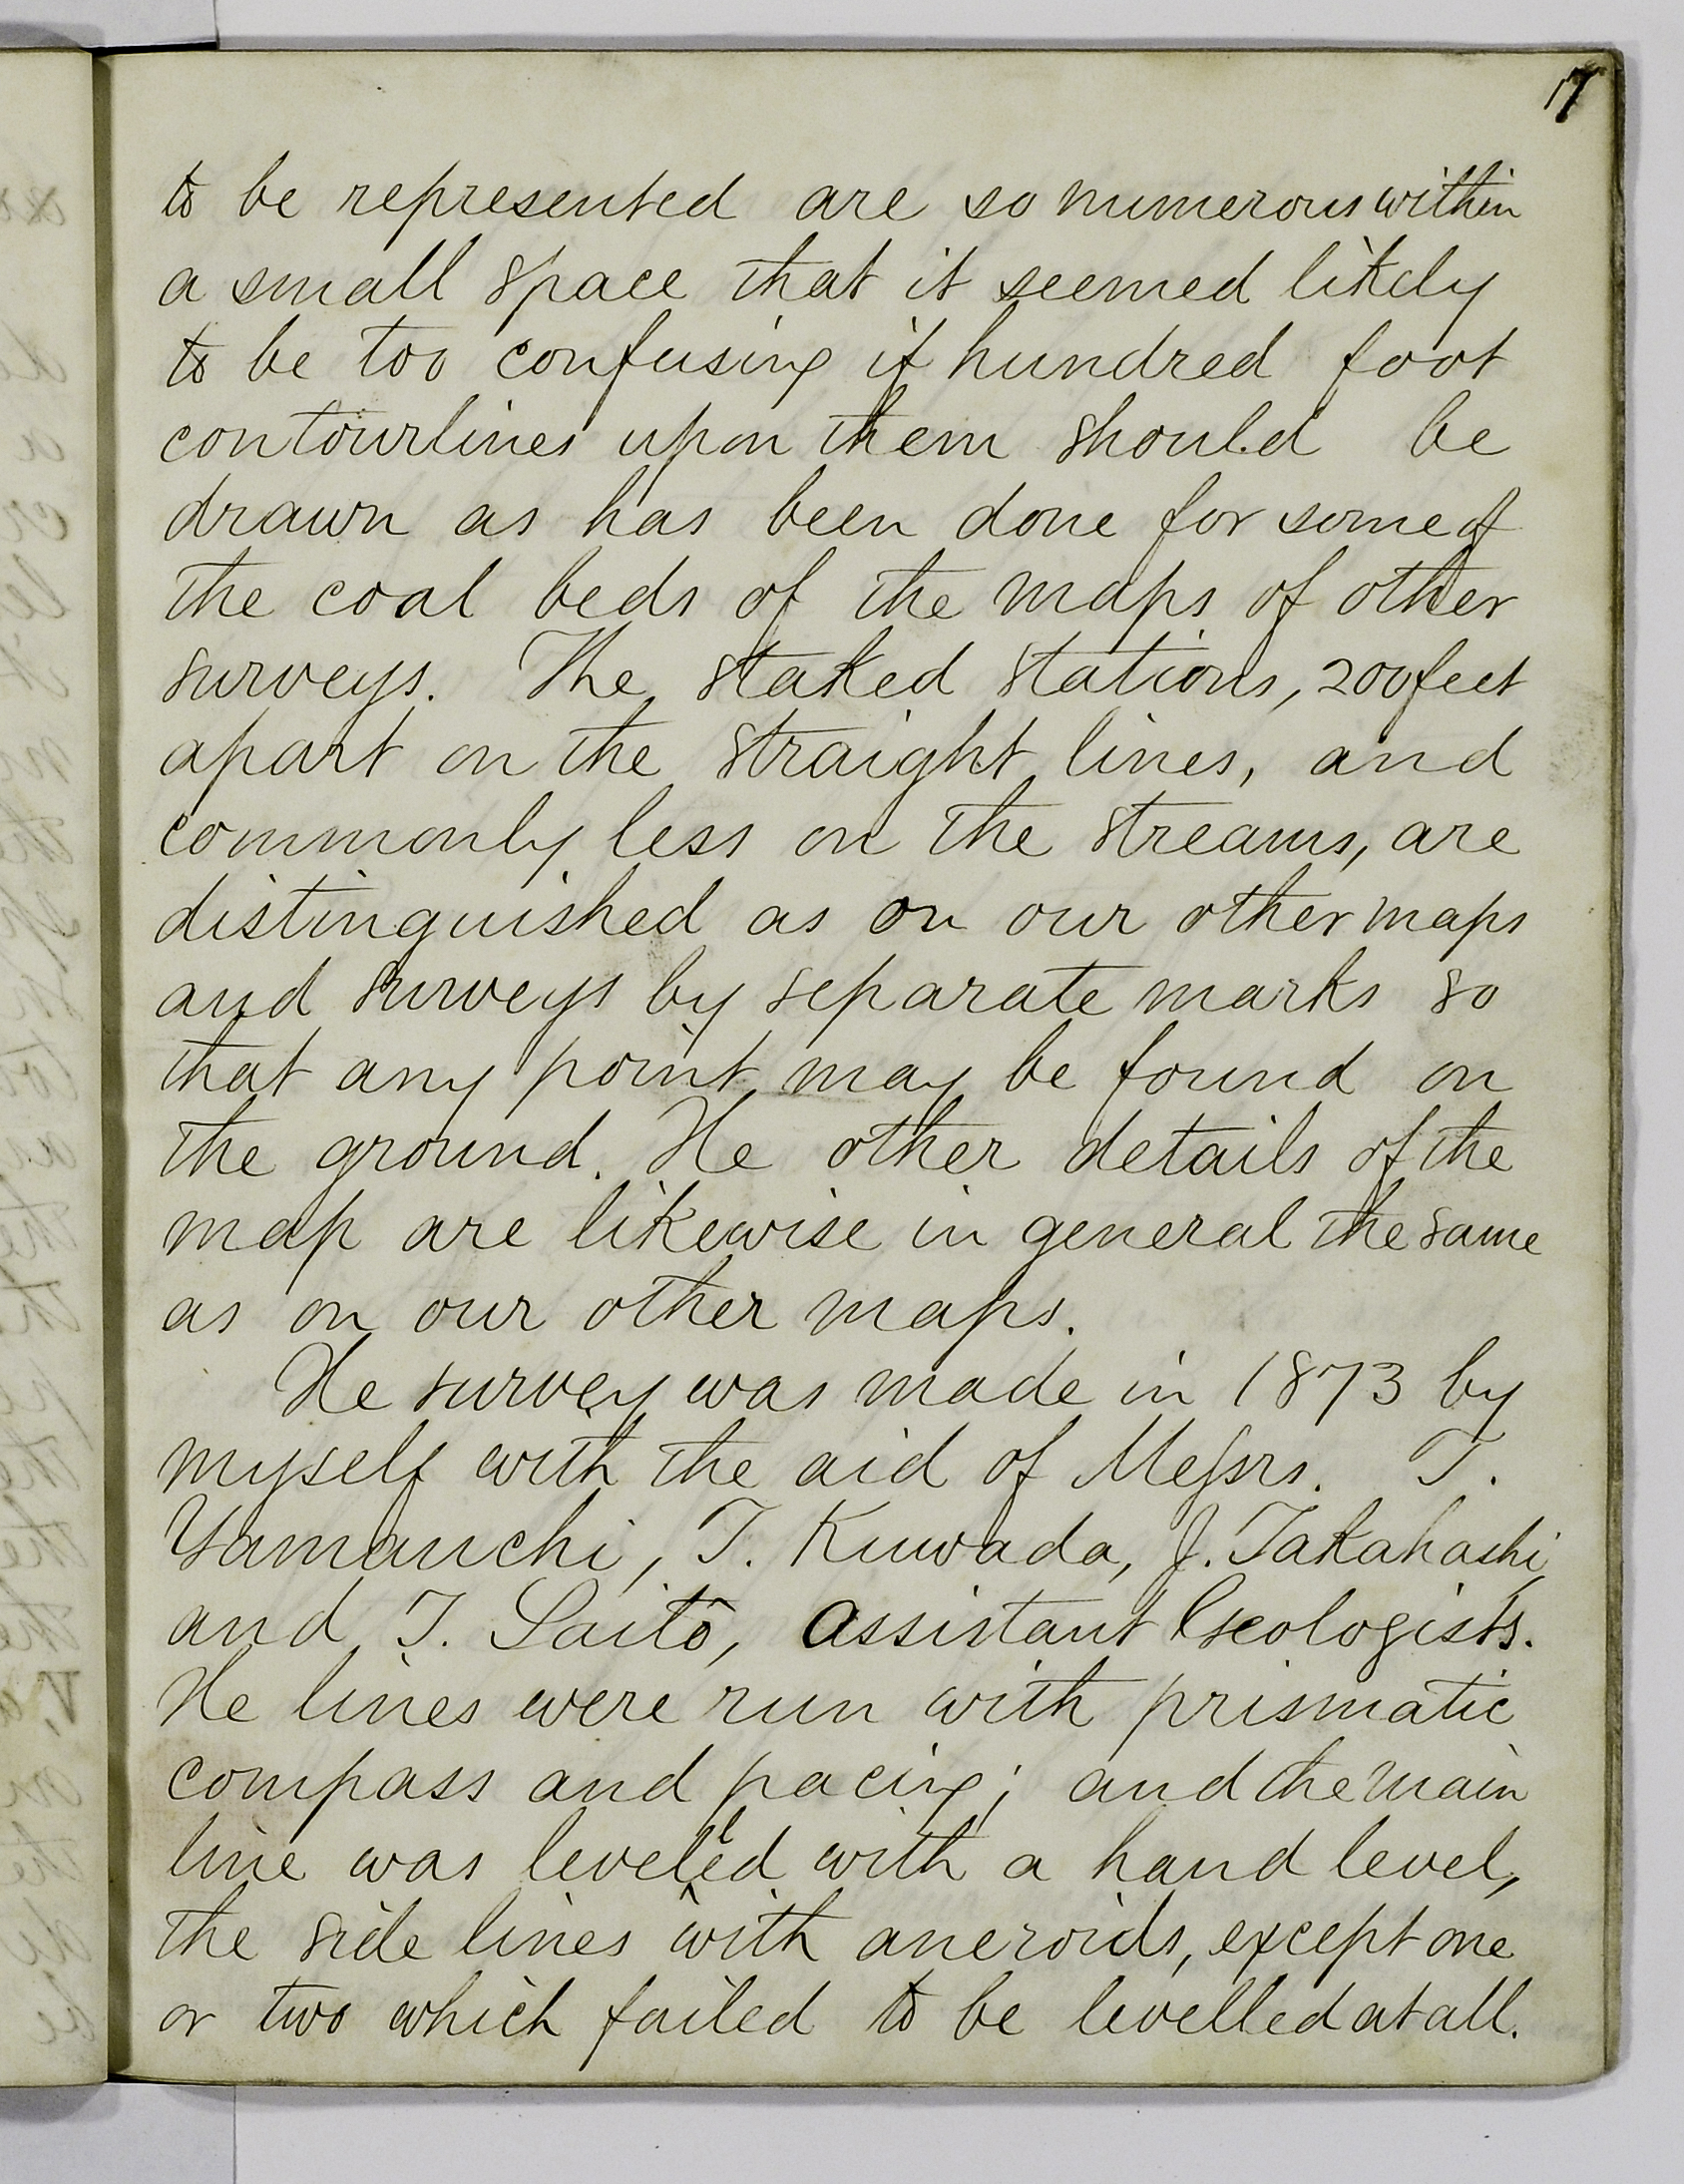 17
to be represented are so numerous within
a small space that it seemed likely
to be too confusing if hundred foot
contourlines upon them should be
drawn as has been done for some of
the coal beds of the maps of other
surveys. The staked stations, 200 feet
apart on the straight lines, and
commonly less on the streams, are
distinguished as on our other maps
and surveys by separate marks so
that any point may be found on
the ground. The other details of the
map are likewise in general the same
as on our other maps.
The survey was made in 1873 by
myself with the aid of Messrs. T.
Yamauchi, T. Kuwada, J. Takahashi,
and T. Saitō, Assistant Geologists.
The lines were run with prismatic
compass and pacing; and the main
line was levelled with a hand level,
the side lines with aneroids, except one
or two which failed to be levelled at all.